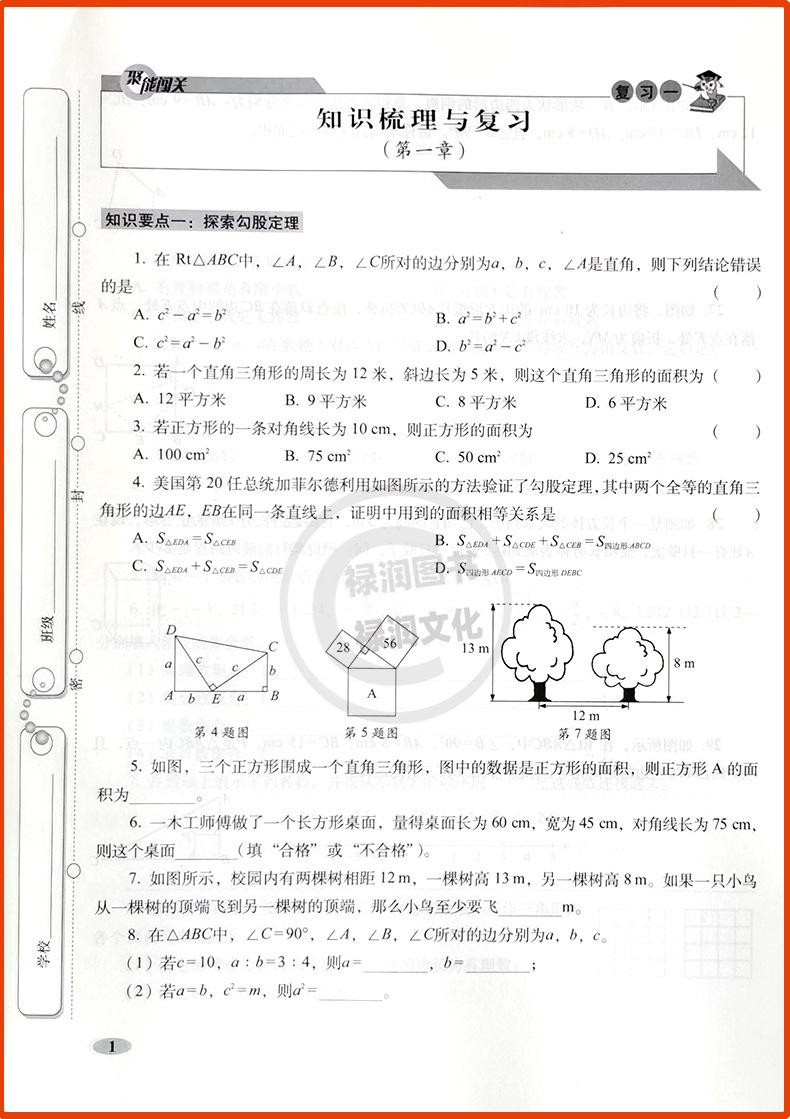 聚能闯关
复习一
知识梳理与复习
(第一章)
知识要点一：探索勾股定理
1. 在 Rt△ABC中，∠A，∠B，∠C所对的边分别为a，b，c，∠A是直角，则下列结论错误
的是 ( )
A. c²－a²＝b² B. a²＝b²＋c²
C. c²＝a²－b² D. b²＝a²－c²
2. 若一个直角三角形的周长为 12 米，斜边长为 5 米，则这个直角三角形的面积为 ( )
A. 12 平方米 B. 9 平方米 C. 8 平方米 D. 6 平方米
3. 若正方形的一条对角线长为 10 cm，则正方形的面积为 ( )
A. 100 cm² B. 75 cm² C. 50 cm² D. 25 cm²
4. 美国第 20 任总统加菲尔德利用如图所示的方法验证了勾股定理，其中两个全等的直角三
角形的边AE，EB在同一条直线上，证明中用到的面积相等关系是 ( )
A. S△EDA＝S△CEB B. S△EDA＋S△CDE＋S△CEB＝S四边形ABCD
C. S△EDA＋S△CEB＝S△CDE D. S四边形AECD＝S四边形DEBC
禄润图书
禄润文化
D C a c c b A b E a B
第 4 题图
28 56 A
第 5 题图
13 m 8 m 12 m
第 7 题图
5. 如图，三个正方形围成一个直角三角形，图中的数据是正方形的面积，则正方形 A 的面
积为________。
6. 一木工师傅做了一个长方形桌面，量得桌面长为 60 cm，宽为 45 cm，对角线长为 75 cm，
则这个桌面________(填“合格”或“不合格”)。
7. 如图所示，校园内有两棵树相距 12 m，一棵树高 13 m，另一棵树高 8 m。如果一只小鸟
从一棵树的顶端飞到另一棵树的顶端，那么小鸟至少要飞________m。
8. 在△ABC中，∠C＝90°，∠A，∠B，∠C所对的边分别为a，b，c。
(1) 若c＝10，a：b＝3：4，则a＝________，b＝________；
(2) 若a＝b，c²＝m，则a²＝________。
1
姓名
班级
学校
线
封
密